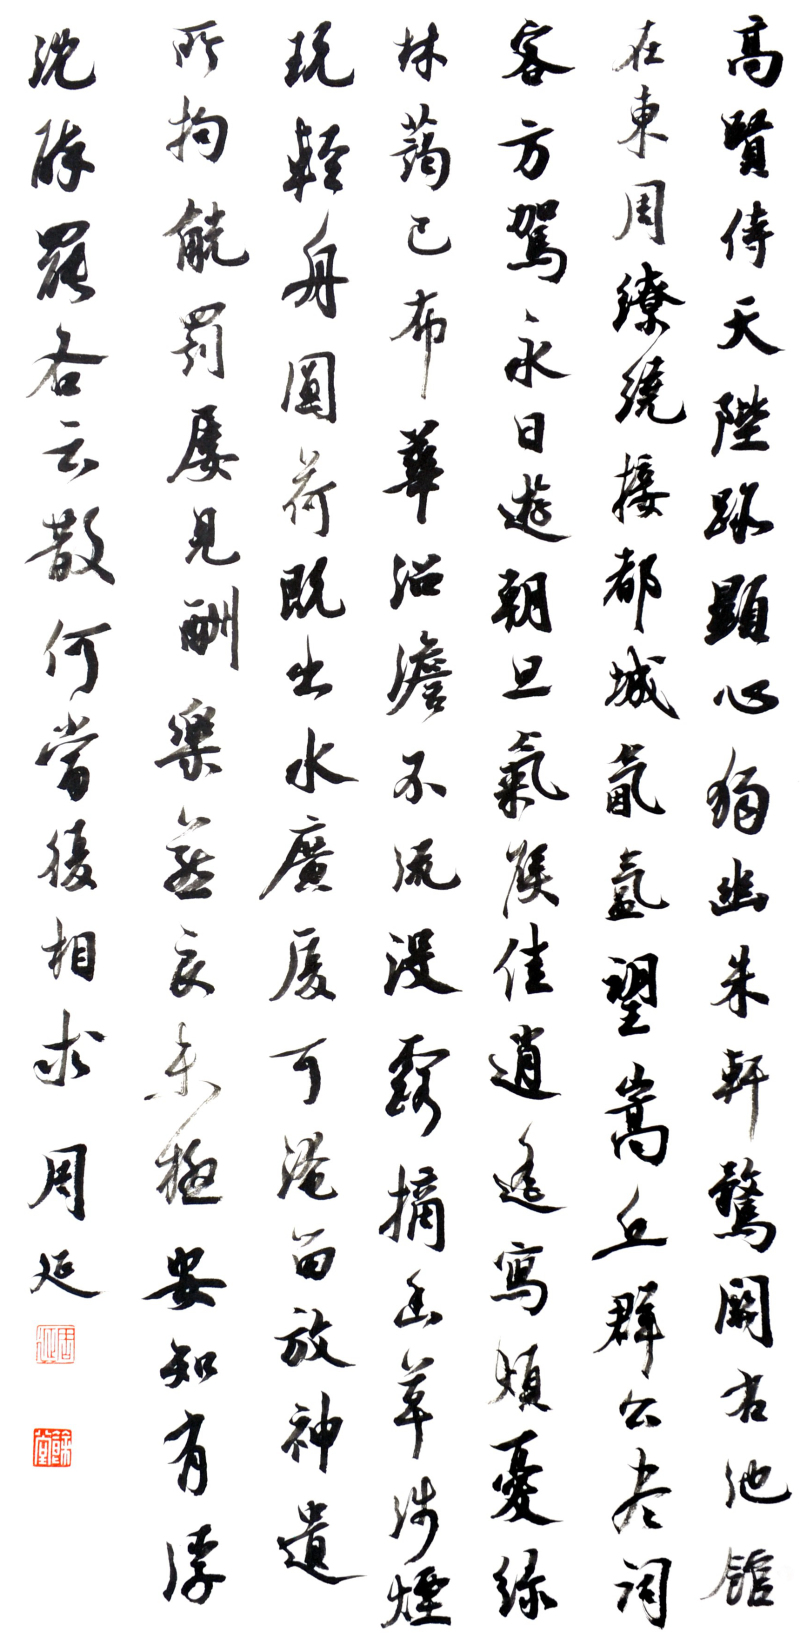 高賢侍天陛跡顯心獨幽朱軒騖關右池館
在東周繚繞接都城氤氳望嵩丘群公盡詞
客方駕永日遊朝旦氣候佳逍遙寫煩憂綠
林藹已布華沼澹不流沒露摘幽草涉煙
玩輕舟圓荷既出水廣廈可淹留放神遺
所拘觥罰屢見酬樂燕良未極安知有浮
沈醉罷各云散何當復相求 周延
周延